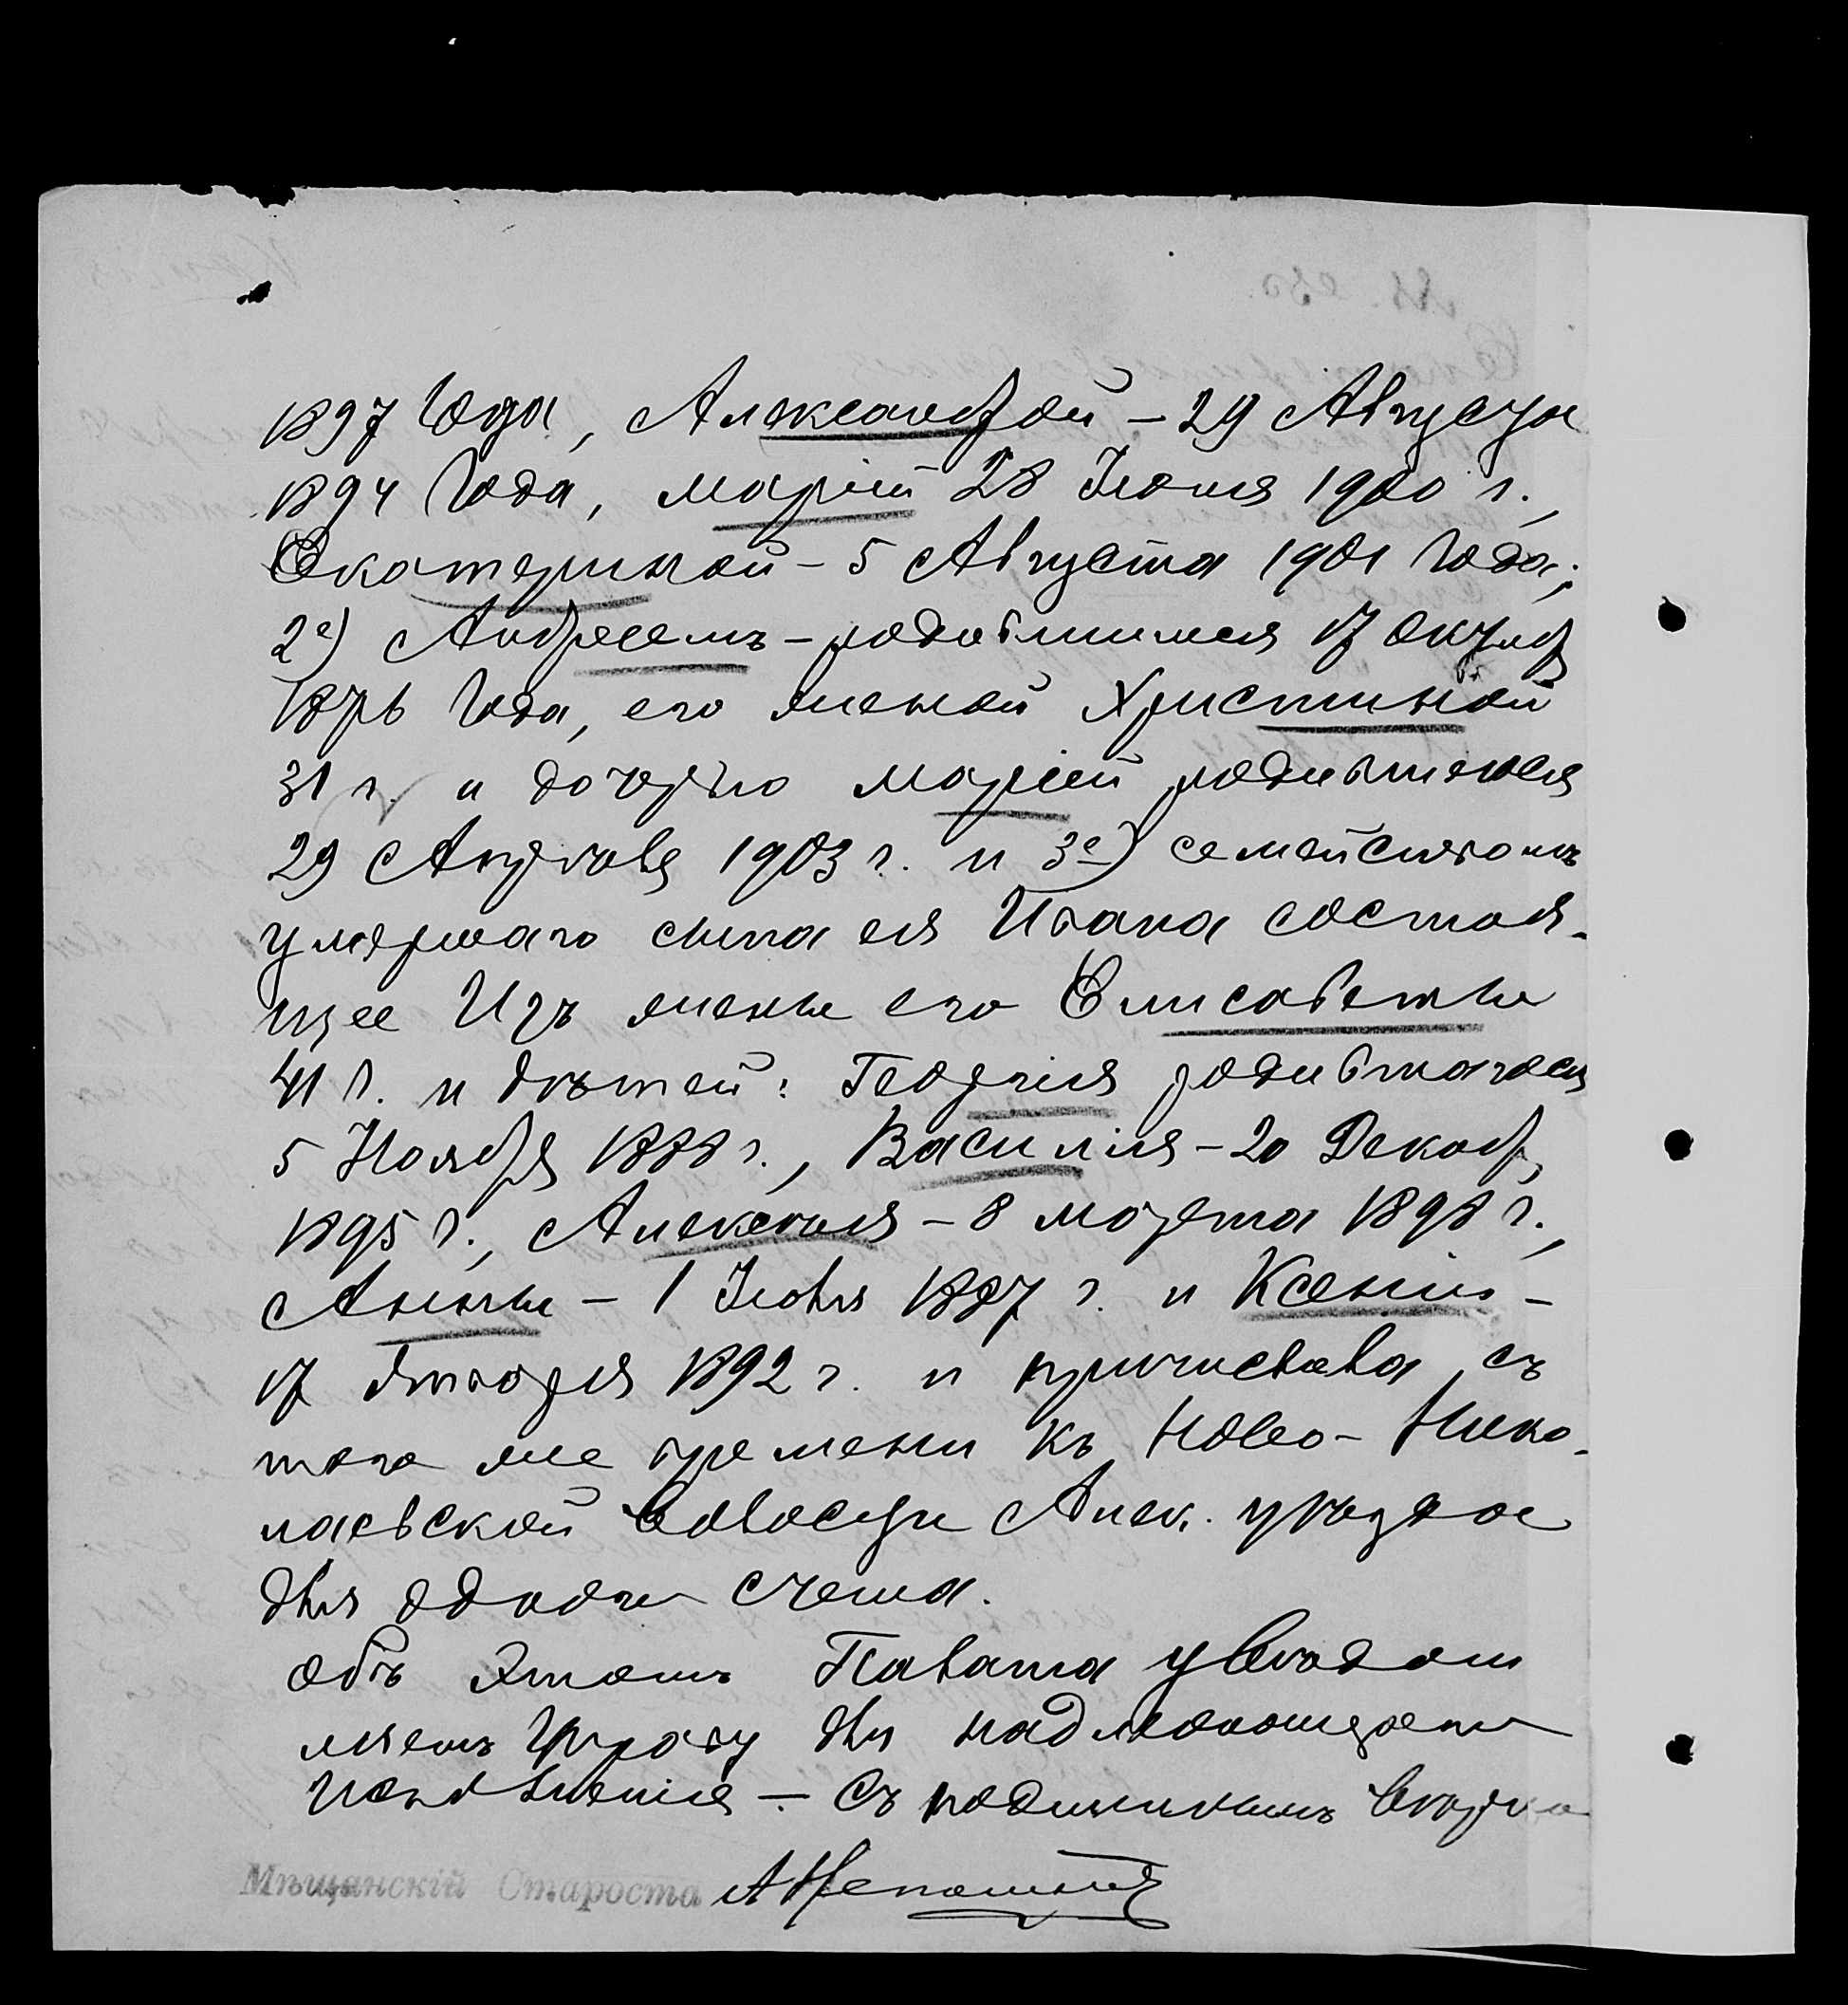 1897 года, Александрой – 29 Августа
1894 года, Маріей 28 Іюня 1900 г.,
Екатериной – 5 Августа 1901 года;
2е) Андреемъ – родившимся 17 Октяб
года, его женой Христиной
31 г. и дочерью Маріей родившеюся
29 1903 г. и 3е) семействомъ
умершаго сына ея Ивана состоя-
щее Изъ жены его Елисаветы
41 г. и дѣтей: Георгія родившагося
5 Ноября 1888 г., Василія – 20 Декаб,
1895 г., Алексѣя – 8 марта 1898 г.,
Анны – 1 Іюля 1887 г. и Ксеніи –
17 Января 1892 г. и причислена съ
того же времени къ Ново-Нико-
лаевской волости Алек. уѣзда
для одного счета.
Объ этомъ Палата увѣдом
ляетъ Управу для надлежащаго
исполненія – Съ подлиннымъ вѣрно
Мѣщанскій Староста